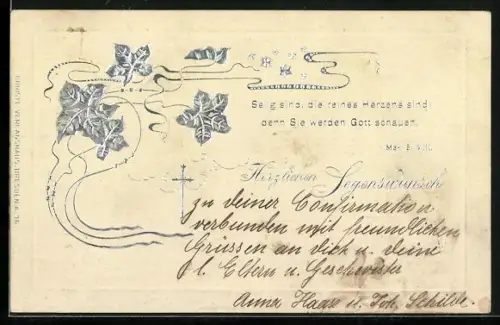 Selig sind, die reines Herzens sind;
denn Sie werden Gott schauen.
Herzlichen Segenswunsch
zu deiner Confirmation
verbunden mit freundlichen
Grüssen an dich u. deine
l. Eltern u. Geschwister
Anna Haas u. Joh. Schilde.